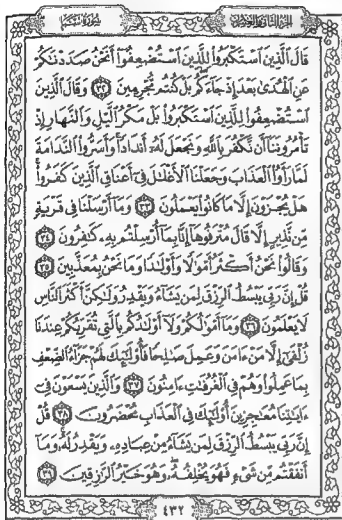 الجزء الثاني والعشرون سورة سبإ
قَالَ الَّذِينَ اسْتَكْبَرُوا لِلَّذِينَ اسْتُضْعِفُوا أَنَحْنُ صَدَدْنَاكُمْ
عَنِ الْهُدَىٰ بَعْدَ إِذْ جَاءَكُم بَلْ كُنتُم مُّجْرِمِينَ ٣٢ وَقَالَ الَّذِينَ
اسْتُضْعِفُوا لِلَّذِينَ اسْتَكْبَرُوا بَلْ مَكْرُ الَّيْلِ وَالنَّهَارِ إِذْ
تَأْمُرُونَنَا أَن نَّكْفُرَ بِاللَّهِ وَنَجْعَلَ لَهُ أَندَادًا وَأَسَرُّوا النَّدَامَةَ
لَمَّا رَأَوُا الْعَذَابَ وَجَعَلْنَا الْأَغْلَالَ فِي أَعْنَاقِ الَّذِينَ كَفَرُوا
هَلْ يُجْزَوْنَ إِلَّا مَا كَانُوا يَعْمَلُونَ ٣٣ وَمَا أَرْسَلْنَا فِي قَرْيَةٍ
مِّن نَّذِيرٍ إِلَّا قَالَ مُتْرَفُوهَا إِنَّا بِمَا أُرْسِلْتُم بِهِ كَافِرُونَ ٣٤
وَقَالُوا نَحْنُ أَكْثَرُ أَمْوَالًا وَأَوْلَادًا وَمَا نَحْنُ بِمُعَذَّبِينَ ٣٥
قُلْ إِنَّ رَبِّي يَبْسُطُ الرِّزْقَ لِمَن يَشَاءُ وَيَقْدِرُ وَلَٰكِنَّ أَكْثَرَ النَّاسِ
لَا يَعْلَمُونَ ٣٦ وَمَا أَمْوَالُكُمْ وَلَا أَوْلَادُكُم بِالَّتِي تُقَرِّبُكُمْ عِندَنَا
زُلْفَىٰ إِلَّا مَنْ ءَامَنَ وَعَمِلَ صَالِحًا فَأُولَٰئِكَ لَهُمْ جَزَاءُ الضِّعْفِ
بِمَا عَمِلُوا وَهُمْ فِي الْغُرُفَاتِ ءَامِنُونَ ٣٧ وَالَّذِينَ يَسْعَوْنَ فِي
ءَايَاتِنَا مُعَاجِزِينَ أُولَٰئِكَ فِي الْعَذَابِ مُحْضَرُونَ ٣٨ قُلْ
إِنَّ رَبِّي يَبْسُطُ الرِّزْقَ لِمَن يَشَاءُ مِنْ عِبَادِهِ وَيَقْدِرُ لَهُ وَمَا
أَنفَقْتُم مِّن شَيْءٍ فَهُوَ يُخْلِفُهُ وَهُوَ خَيْرُ الرَّازِقِينَ ٣٩
٤٣٢